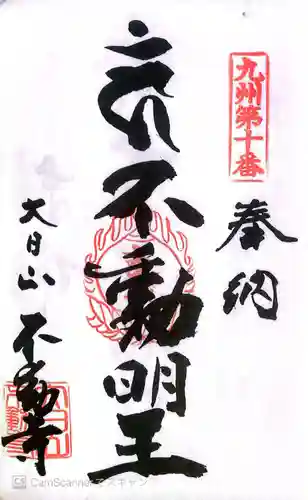 九州第十番
奉納
不動明王
大日山
不動寺
CamScanner でスキャン